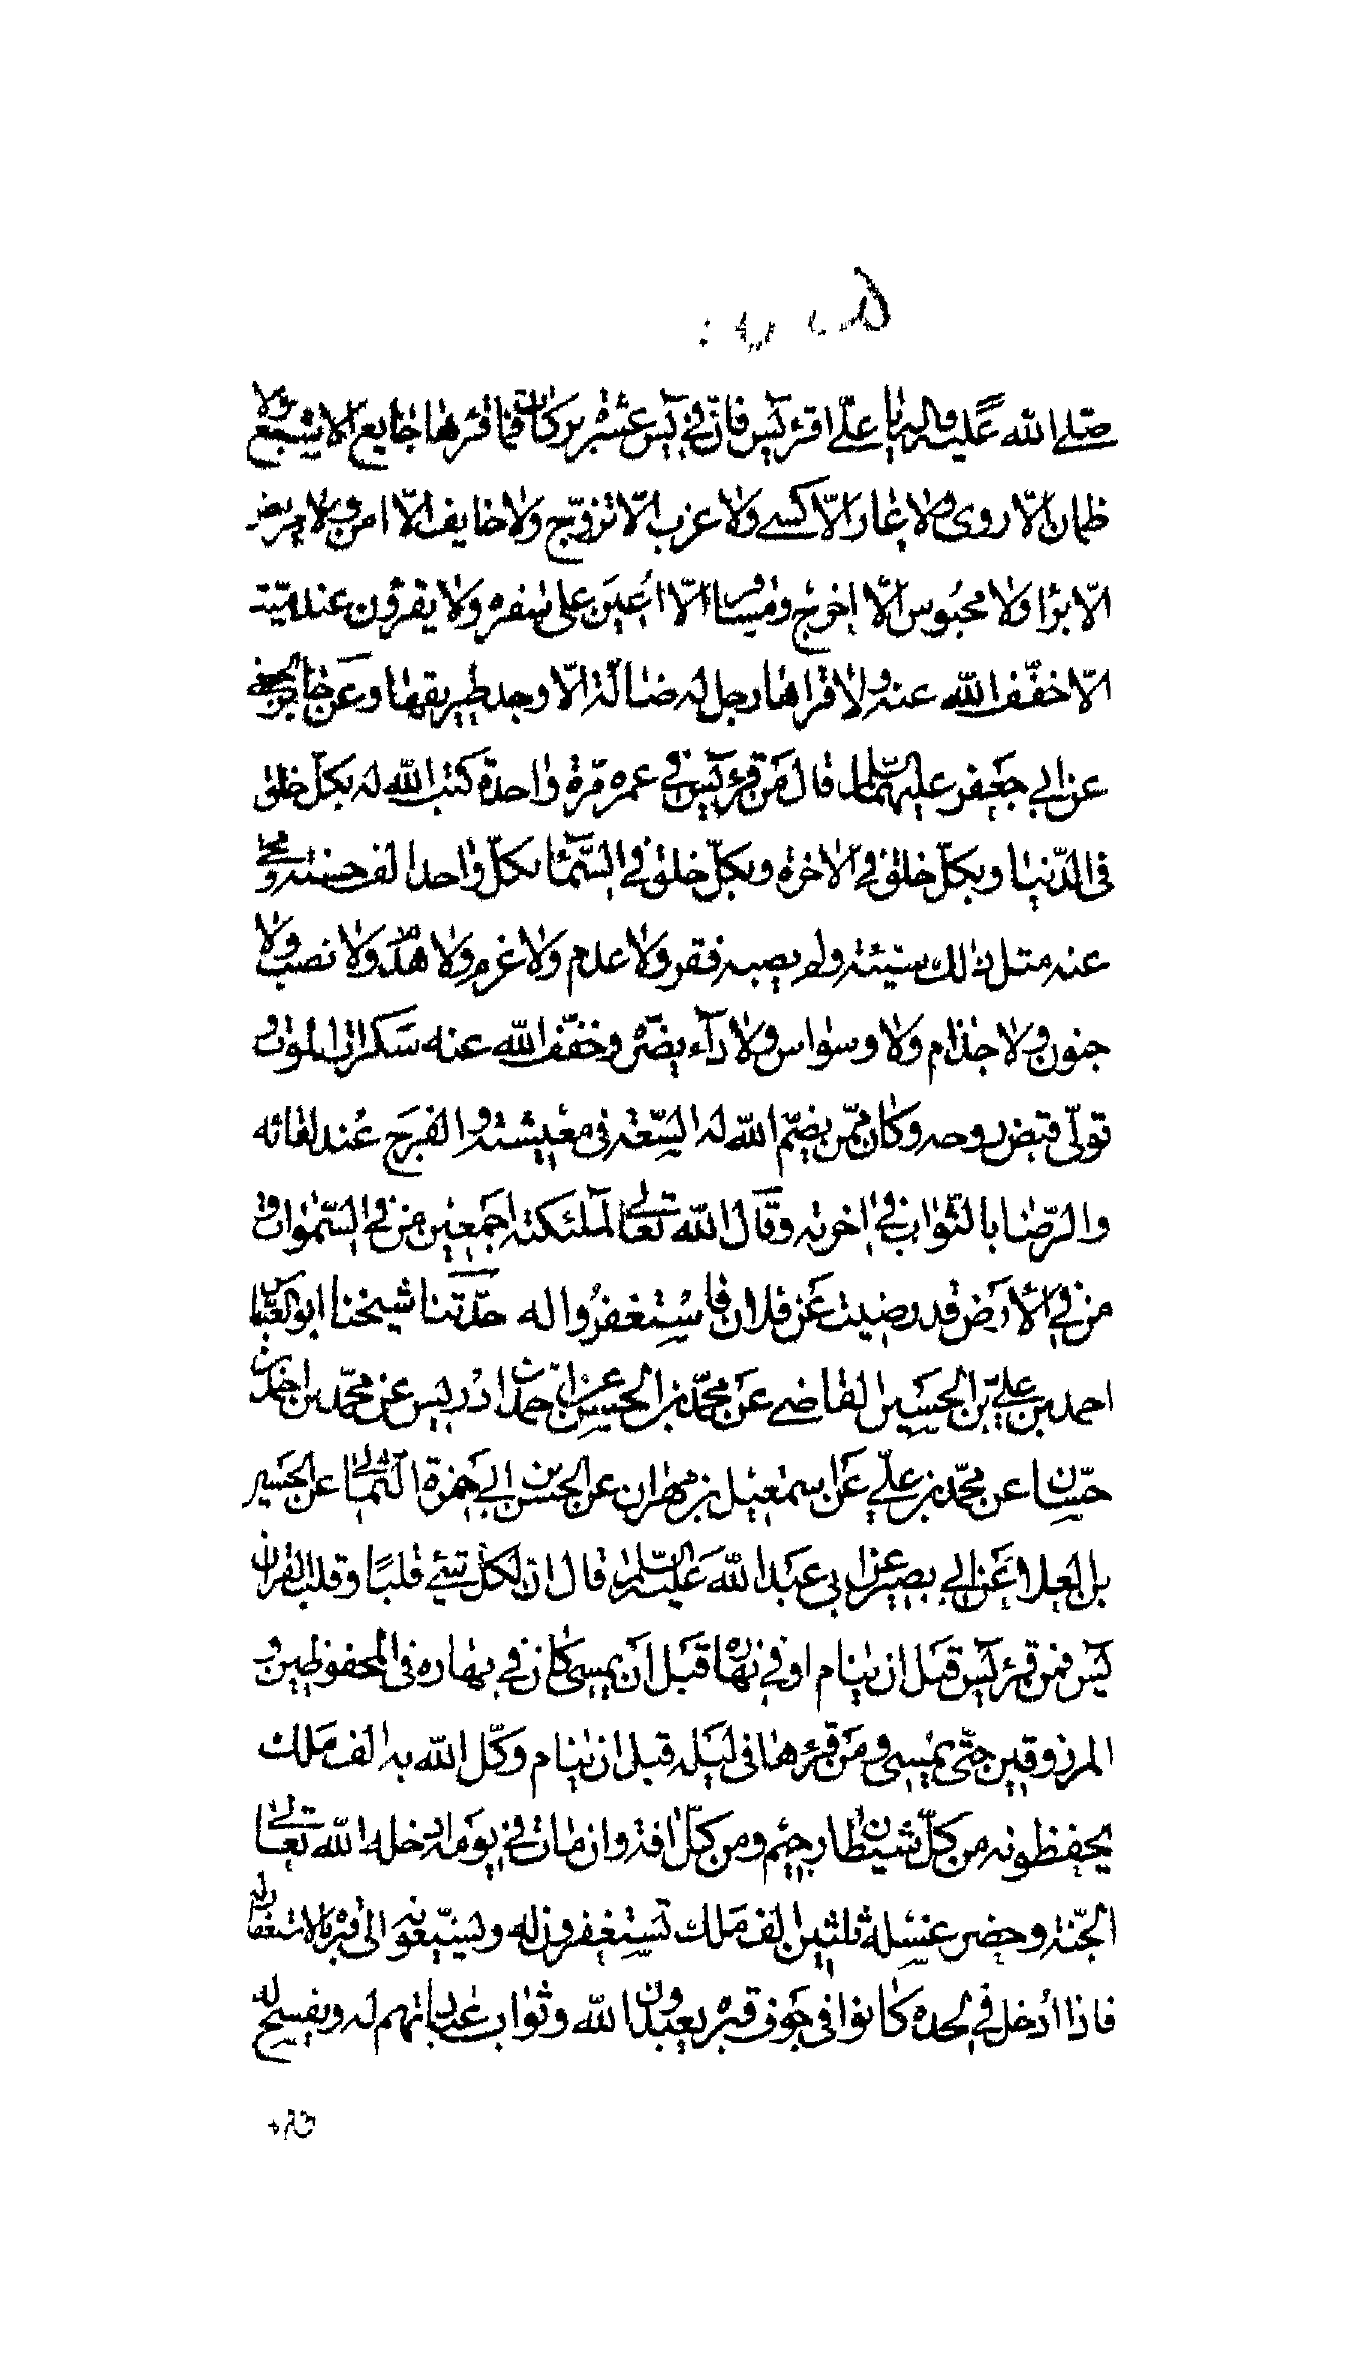 صلى الله عليه واله يا على اقرء يس فان فى يس عشر بركات فما قرءها جايع الا يشبع ولا
ظمان الا روى ولا عار الا كسى ولا عزب الا تزوج ولا خايف الا امن ولا مريض
الا برا ولا محبوس الا اخرج ولا مسافر الا اعين على سفره ولا يقرؤن عند ميت
الا خفف الله عنه ولا قراها رجل له ضالة الا وجد طريقها وعن جابر الجعفى
عن ابى جعفر عليه السلم قال من قرء يس فى عمره مرة واحدة كتب الله له بكل خلق
فى الدنيا وبكل خلق فى الاخرة وبكل خلق فى السماء بكل واحد الف حسنة ومحى
عنه مثل ذلك سيئة ولم يصبه فقر ولا عدم ولا غرم ولا هدم ولا نصب ولا
جنون ولا جذام ولا وسواس ولا داء يضره وخفف الله عنه سكرات الموت و
تولى قبض روحه وكان ممن يضم الله له السعة فى معيشته والفرج عند لقائه
والرضا بالثواب فى اخرته وقال الله تعالى لملئكته اجمعين من فى السموات و
من فى الارض قد رضيت عن فلان فاستغفروا له حدثنا شيخنا ابو العباس
احمد بن على بن الحسين القاضى عن محمد بن الحسن عن احمد بن ادريس عن محمد بن احمد عن
حسان عن محمد بن على عن اسمعيل بن مهران عن الحسن بن ابى حمزة الثمالى عن الحسين
بن العلاء عن ابى بصير عن ابى عبد الله عليه السلم قال ان لكل شيئ قلبا وقلب القران
يس فمن قرء يس قبل ان ينام او فى نهاره قبل ان يمسى كان فى نهاره فى المحفوظين و
المرزوقين حتى يمسى ومن قرءها فى ليله قبل ان ينام وكل الله به الف ملك
يحفظونه من كل شيطان رجيم ومن كل افة وان مات فى يومه ادخله الله تعالى
الجنة وحضر غسله ثلثين الف ملك تستغفرون له ويشيعونه الى قبره بالاستغفار له
فاذا ادخل فى لحده كانوا فى جوف قبره يعبدون الله وثواب عباداتهم له ويفسح له